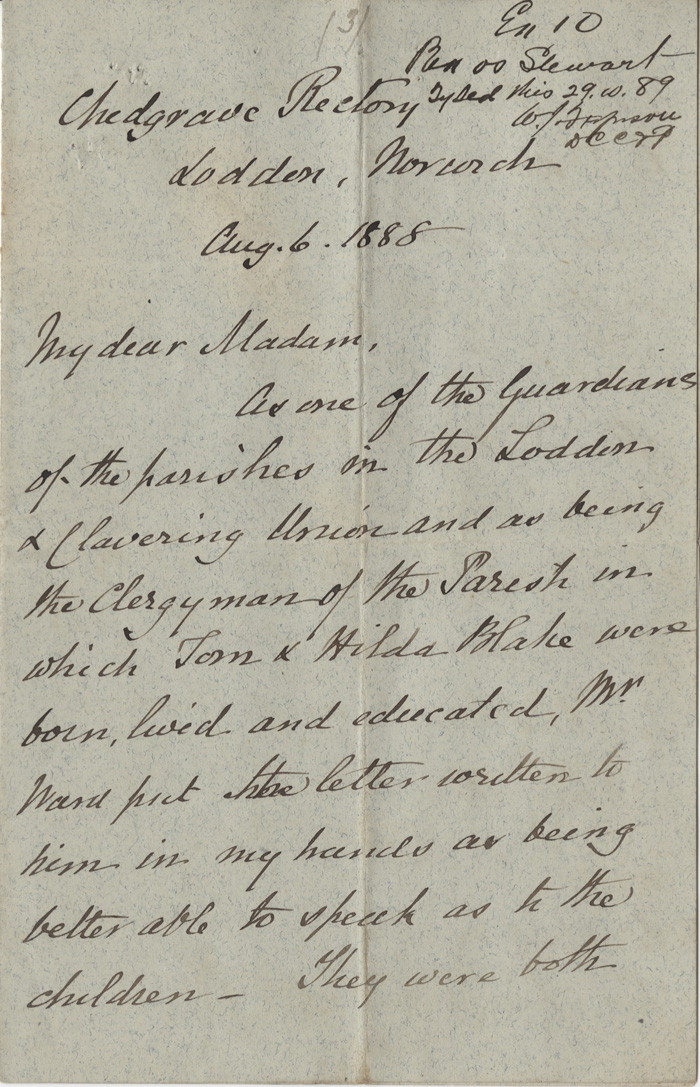 (3)
Ex 10
Stewart
this 29.10.89
Chedgrave Rectory
Loddon, Norwich
Aug. 6. 1888
My dear Madam,
As one of the Guardians
of the parishes in the Loddon
& Clavering Union and as being
the Clergyman of the Parish in
which Tom & Hilda Blake were
born, lived and educated, Mr
Ward put the letter written to
him in my hands as being
better able to speak as to the
children - They were both